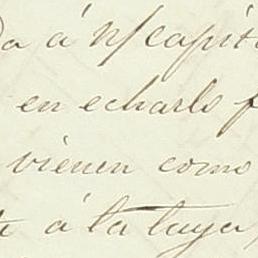 da á n/ capit
en echarlo f
vienen como
á la tuya,